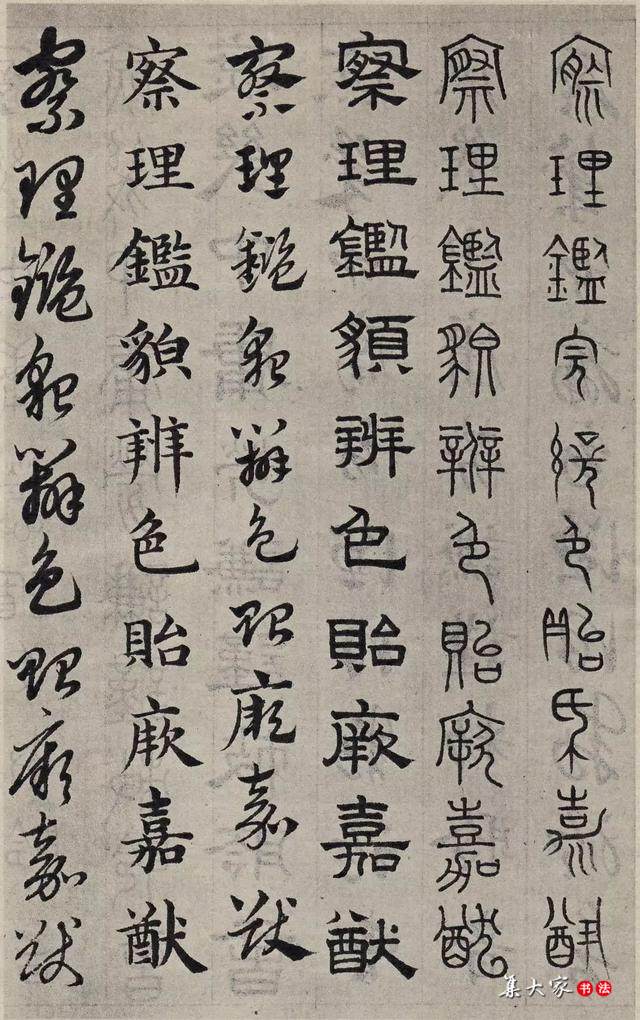 察理鑑貌辨色貽厥嘉猷
察理鑑貌辨色貽厥嘉猷
察理鑑貌辨色貽厥嘉猷
察理鑑貌辨色貽厥嘉猷
察理鑑貌辨色貽厥嘉猷
察理鑑貌辨色貽厥嘉猷
集大家书法